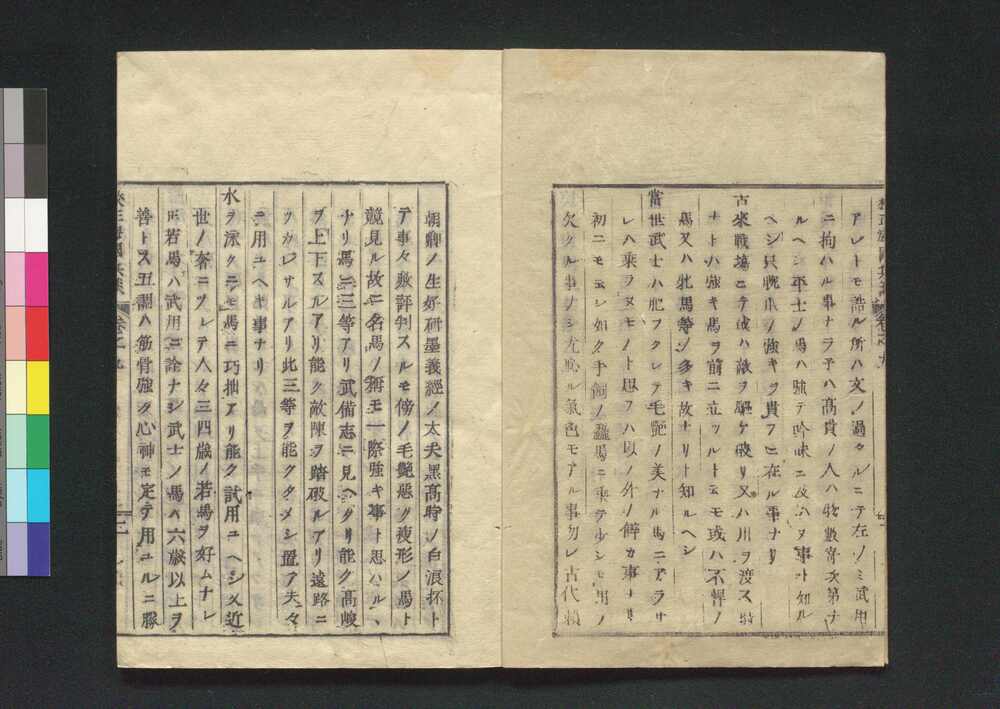 アレトモ誥ル所ハ文ノ過タルニテ左ノミ武用
ニ拘ハル事ナラ予ハ高貴ノ人ハ物數寄次第ナ
ルヘシ平士ノ馬ハ強テ吟味ニ及ハヌ事ト知ル
ヘシ只腕爪ノ強キヲ貴フニ在ル事ナリ
古來戰塲ニテ或ハ敵ヲ驅ケ破リ又ハ川ヲ渡ス時
ナトハ強キ馬ヲ前ニ立ツルト云モ或ハ不悍ノ
馬又ハ牝馬等ノ多キ故ナリト知ルヘシ
當世武士ハ肥フクレテ毛艶ノ美ナル馬ニアラサ
レハ乘ラヌモノト思フハ以ノ外ノ僻カ事ナリ
初ニモ云シ如ク手飼ノ麤馬ニ乘テ少シモ男ノ
欠クル事ノシ尤恥ル氣色モアル事勿レ古代賴
朝卿ノ生好研墨義經ノ太夫黑高時ノ白浪抔ト
テ事々敷評判スルモ傍ノ毛艶惡ク瘦形ノ馬ト
競見ル故ニ名馬ノ稱モ一際強キ事ト思ハル、
ナリ馬ニ三等アリ武備志ニ見ヘタリ能ク高峻
ヲ上下スルアリ能ク敵陳ヲ踏破ルアリ遠路ニ
ツカレサルアリ此三等ヲ能クタメシ置ア夫々
ニ用ユヘキ事ナリ
水ヲ泳クニモ馬ニ巧拙アリ能ク試用ユヘシ又近
世ノ奢ニツレテ人々三四歲ノ若馬ヲ好ムナレ
𪜈若馬ハ武用ニ詮ナシ武士ノ馬ハ六歲以上ヲ
善トス五調ハ筋骨強ク心神モ定テ用ユルニ勝